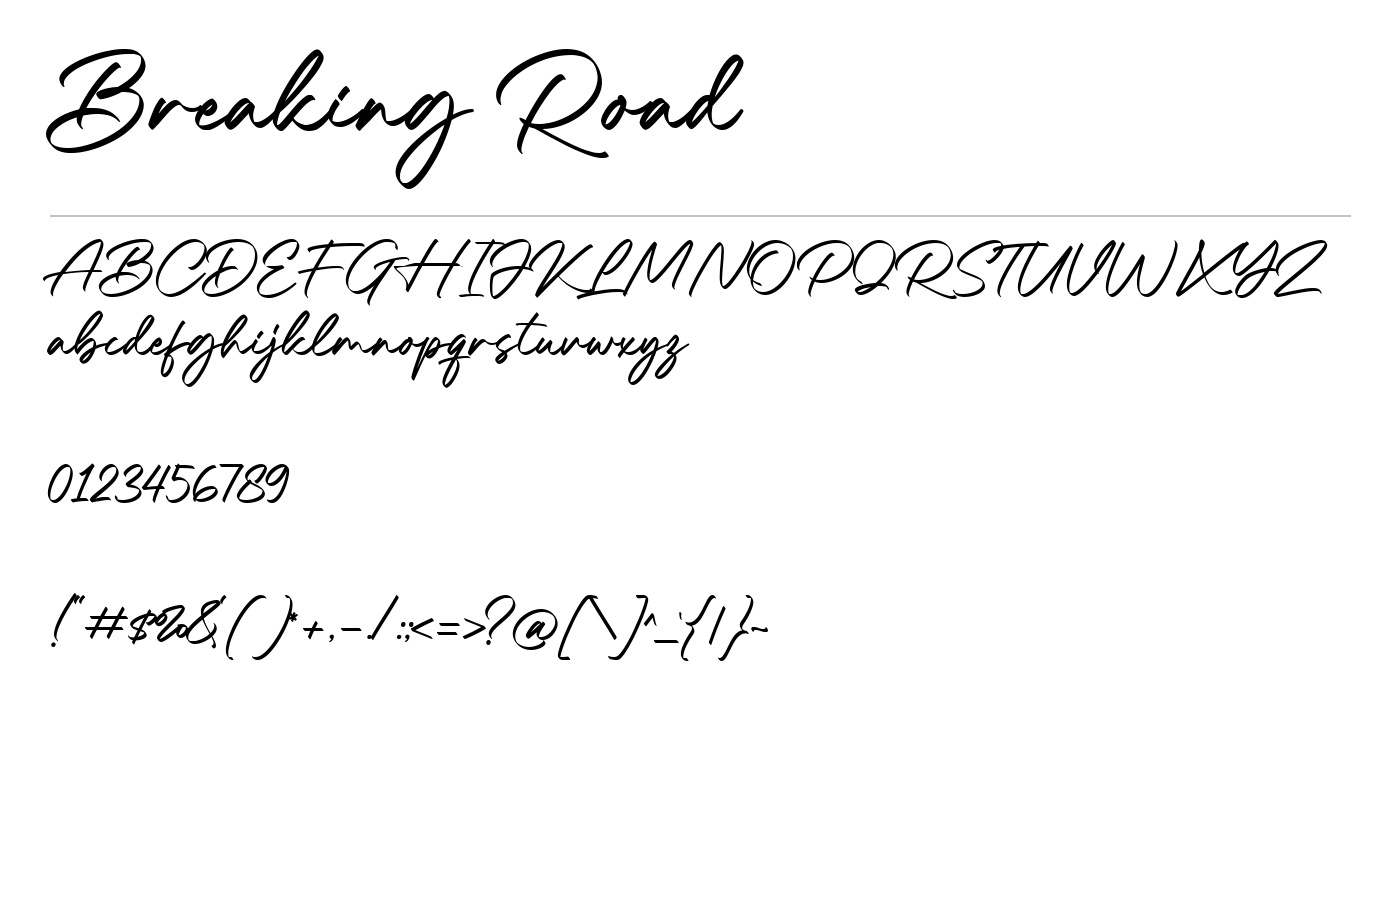 Breaking Road
ABCDEFGHIJKLMNOPQRSTUVWXYZ
abcdefghijklmnopqrstuvwxyz
0123456789
!"#$%&'()*+,-./:;<=>?@[\]^_`{|}~